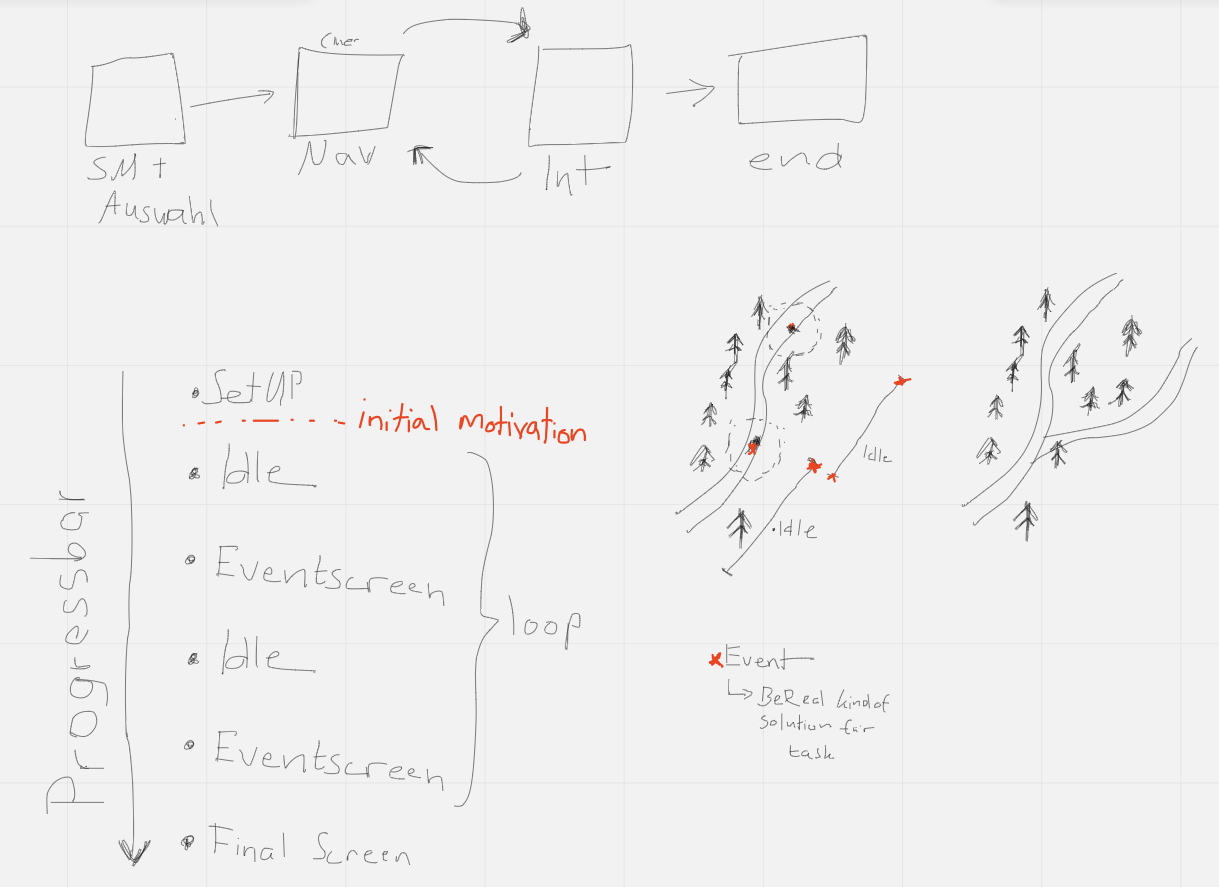 SM +
Auswahl
Nav
Int
end
Progressbar
SetUP
initial motivation
Idle
Eventscreen
Idle
Eventscreen
loop
Final Screen
Idle
Idle
Event
BeReal kind of
solution für
task